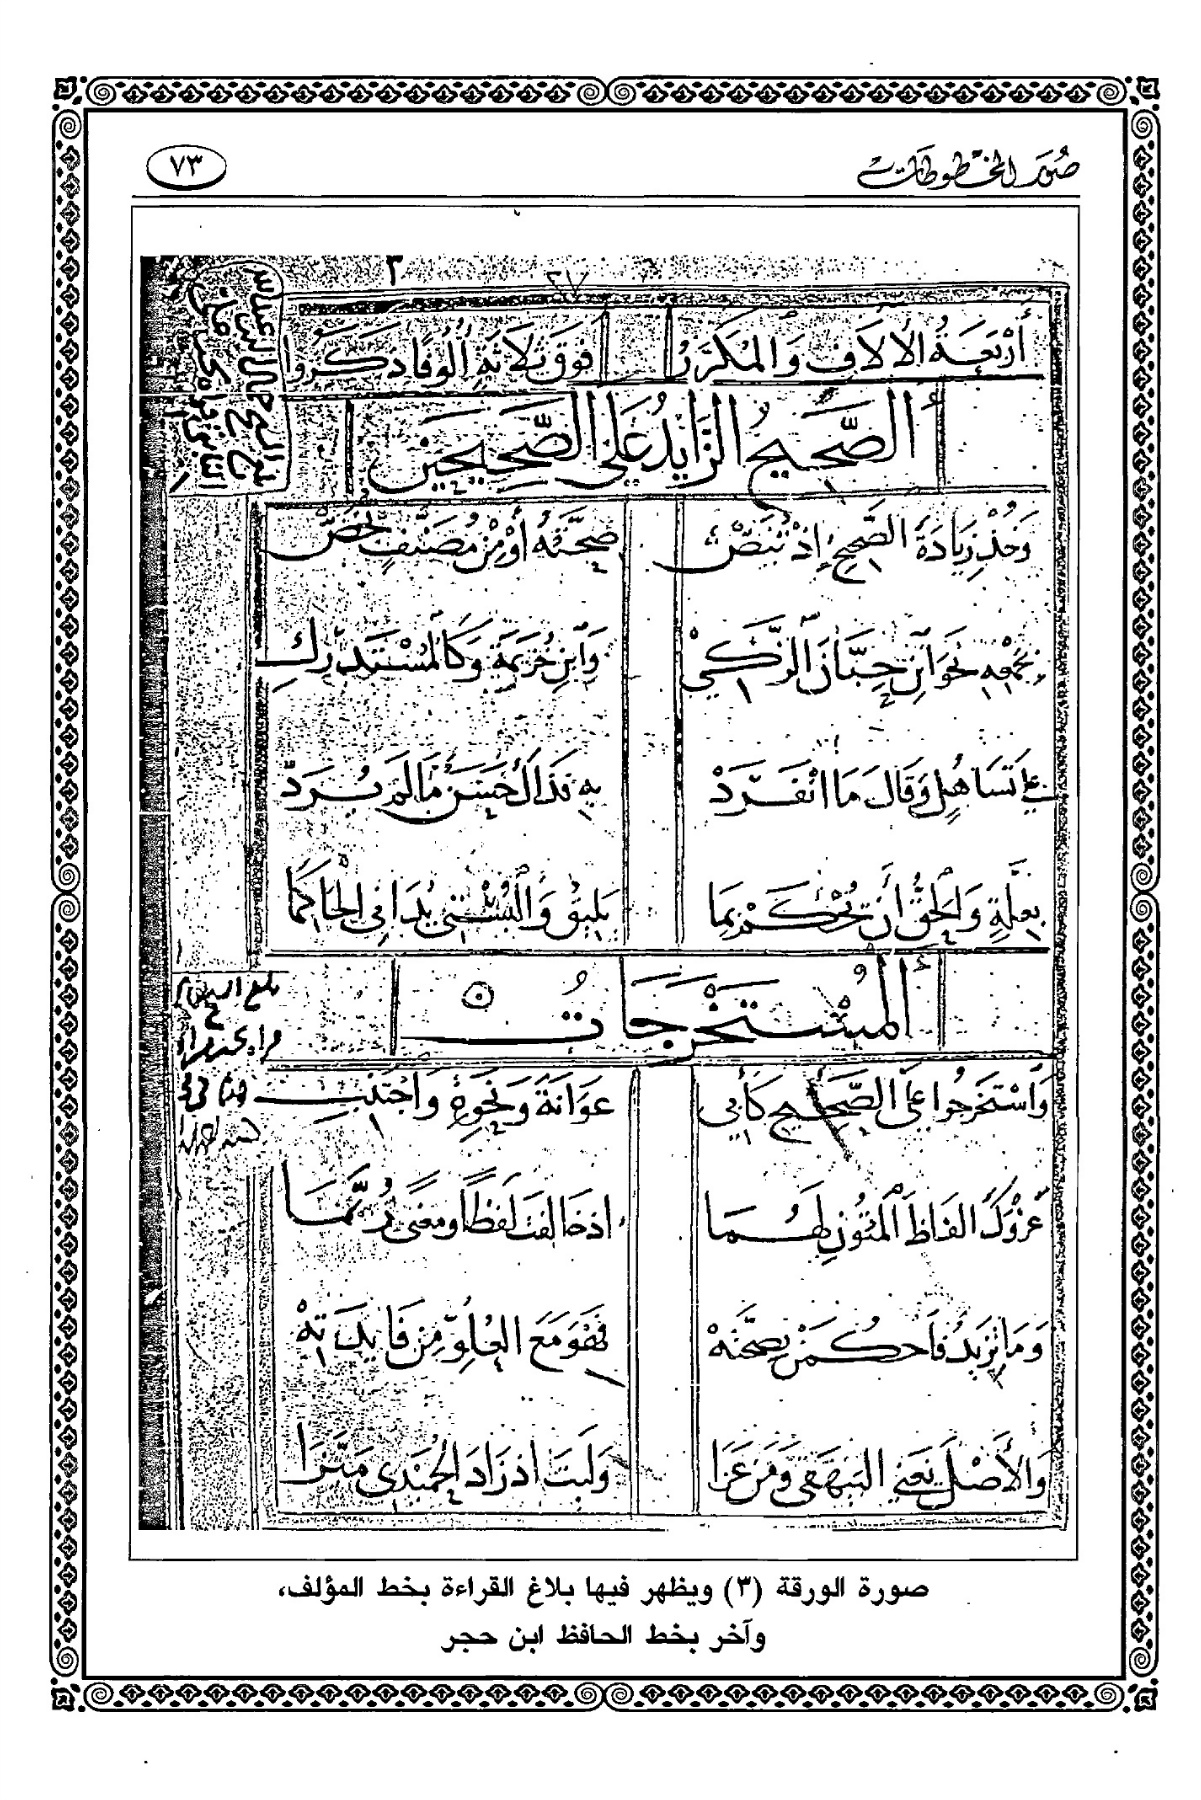 صور المخطوطات
٧٣
٣
٢٧
أَرْبَعَةُ الألافِ وَالمُكَرَّرُ فوق ثلاثة ألوفا ذكروا
الصَّحِيحُ الزَّايدُ عَلَى الصَّحِيحَيْن
وَخُذْ زِيَادَةَ الصَّحِيحِ إِذْ تُنَصُّ صِحَّتُهُ أَوْ مِنْ مُصَنَّفٍ يُخَصّ
بجمعه نحو ابْنِ حِبَّانَ الزَّكِيْ وَابْنِ خُزَيمَةَ وَكَالمُسْتَدْرَكِ
على تَسَاهُلٍ وَقَالَ مَا انْفَرَدْ به فذاك حَسَنٌ مَا لَمْ يُرَدّ
بِعِلَّةٍ وَالحَقُّ أَنْ يُحْكَمْ بِمَا يليق وَالبُسْتِيْ يُدَانِي الحَاكِمَا
المُسْتَخْرَجَاتُ
وَاسْتَخْرَجُوا عَلَى الصَّحِيحِ كَأَبِي عَوَانَةٍ وَنَحْوِهِ وَاجْتَنِبِ
عَزْوَكَ الفَاظَ المُتُونِ لَهُمَا اذ خالفت لَفْظًا ومعنى رُبَّمَا
وَمَا تَزِيدُ فَاحْكُمَنْ بِصِحَّتِهْ فَهْوَ مَعَ العُلُوِّ مِن فَايدَتِهْ
وَالأَصْلَ يَعْنِي البَيْهَقِي وَمَنْ عَزَا وَلَيْتَ اذ زَادَ الحُمَيدِي مَيَّزَا
صورة الورقة (٣) ويظهر فيها بلاغ القراءة بخط المؤلف،
وآخر بخط الحافظ ابن حجر